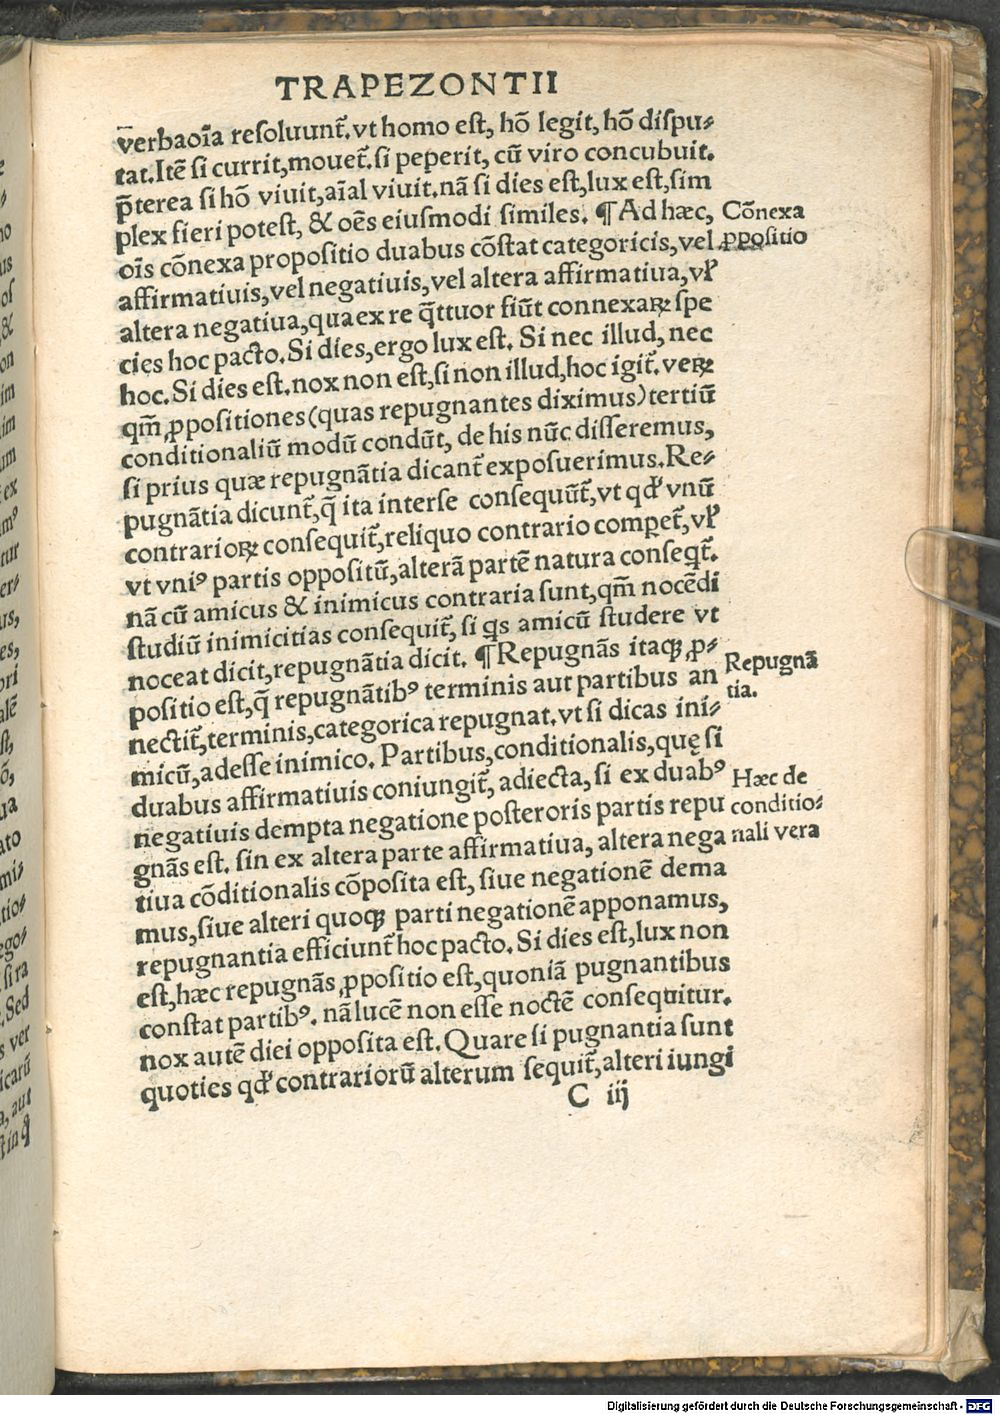 TRAPEZONTII
v̄erbaoīa reſoluunt̃. vt homo eſt, hō legit, hō diſpu⸗
tat. Itē ſi currit, mouet̃. ſi peperit, cū viro concubuit.
p̄terea ſi hō viuit, aīal viuit. nā ſi dies eſt, lux eſt, ſim
plex fieri poteſt, & oēs eiuſmodi ſimiles. ¶ Ad hæc,
oīs cōnexa propoſitio duabus cōſtat categoricis, vel
affirmatiuis, vel negatiuis, vel altera affirmatiua, vƚ
altera negatiua, qua ex re q̄ttuor fiūt connexaꝝ ſpe
cies hoc pacto. Si dies, ergo lux eſt. Si nec illud, nec
hoc. Si dies eſt. nox non eſt, ſi non illud, hoc igit̃. veꝝ
qm̄ ꝓpoſitiones (quas repugnantes diximus) tertiū
conditionaliū modū condūt, de his nūc diſſeremus,
ſi prius quæ repugnātia dicant̃ expoſuerimus. Re⸗
pugnātia dicunt̃, q̄ ita interſe conſequūt̃, vt qď vnū
contrarioꝝ conſequit̃, reliquo contrario compet̃, vƚ
vt vniꝰ partis oppoſitū, alterā partē natura conſeqt̃.
nā cū amicus & inimicus contraria ſunt, qm̄ nocēdi
ſtudiū inimicitias conſequit̃, ſi qs amicū ſtudere vt
noceat dicit, repugnātia dicit. ¶ Repugnās itaqꝫ ꝓ⸗
poſitio eſt, q̄ repugnātibꝰ terminis aut partibus an
nectit̃, terminis, categorica repugnat. vt ſi dicas ini⸗
micū, adeſſe inimico. Partibus, conditionalis, quę ſi
duabus affirmatiuis coniungit̃, adiecta, ſi ex duabꝰ
negatiuis dempta negatione poſteroris partis repu
gnās eſt. ſin ex altera parte affirmatiua, altera nega
tiua cōditionalis cōpoſita eſt, ſiue negationē dema
mus, ſiue alteri quoqꝫ parti negationē apponamus,
repugnantia efficiunt̃ hoc pacto. Si dies eſt, lux non
eſt, hæc repugnās ꝓpoſitio eſt, quoniā pugnantibus
conſtat partibꝰ. nā lucē non eſſe noctē conſequitur.
nox autē diei oppoſita eſt. Quare ſi pugnantia ſunt
quoties qď contrariorū alterum ſequit̃, alteri iungi
C iij
Cōnexa
ꝓpoſitio
Repugnā
tia.
Hæc de
conditio⸗
nali vera
Digitalisierung gefördert durch die Deutsche Forschungsgemeinschaft - DFG